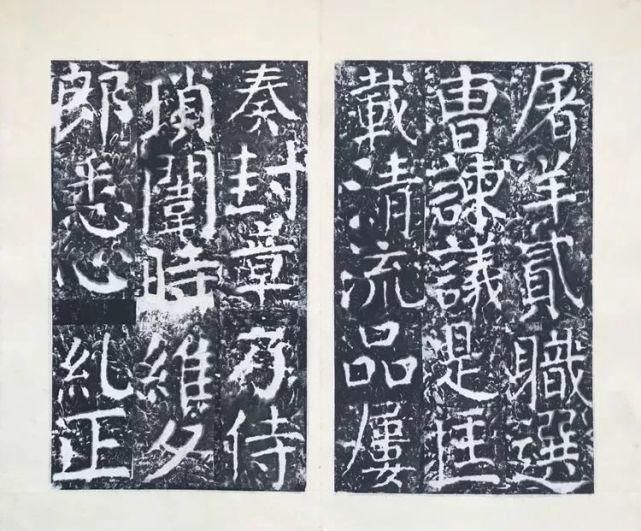 屠貳職選
曹諫議是匡
載清流品屢
奏封章承侍
瑣闈時維夕
郎悉心糺正